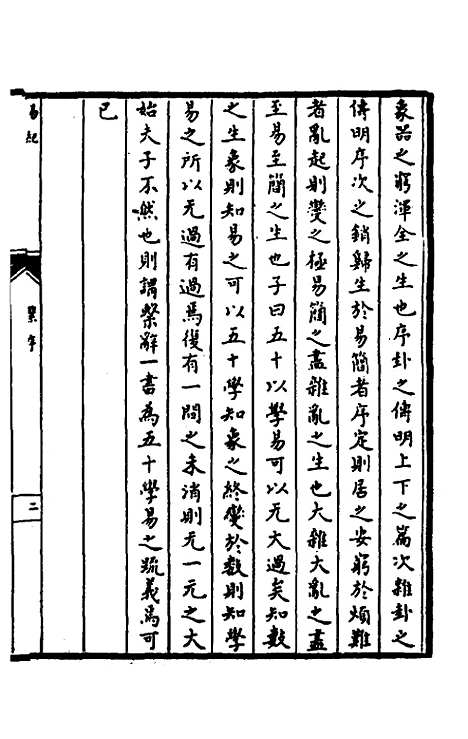 象器之窮渾全之生也序卦之傳明上下之篇次雜卦之
傳明序次之錯歸生於易簡者序定則居之安窮於煩難
者亂起則變之極易簡之盡雜亂之生也大雜大亂之盡
至易至簡之生也子曰五十以學易可以无大過矣知數
之生象則知易之可以五十學知象之終變於數則知學
易之所以无過有過焉復有一問之未消則无一元之大
始夫子不然也則謂繫辭一書為五十學易之疏義焉可
已
易紀
繫序
二